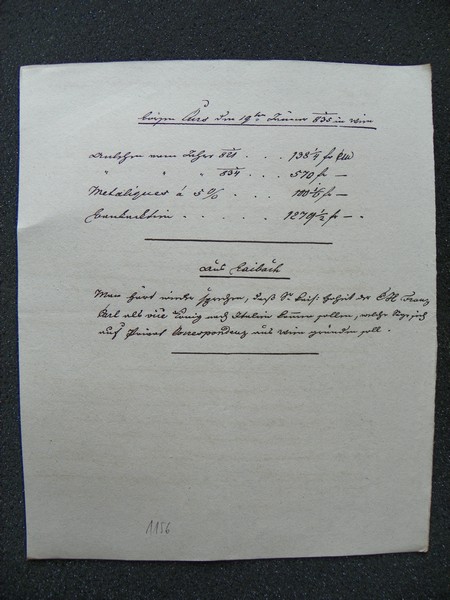 börsen Curs den 19ten Jänner 835 in wien
Anlehen vom Jahre 821 . . . 138 1/4 fr CM
" " " 834 . . . 570 fr —
Metaliques á 5 0/0 . . . fr —
Bankactien . . . . . 1279 1/2 fr — .
Aus Laibach
Man hört wieder sprechen, daß Sr. Kais: Hoheit der EH. Franz
Carl als vice König nach Italien kommen sollen, welche Sage sich
auf Privat Correspondenz aus wien gründen soll.
1156